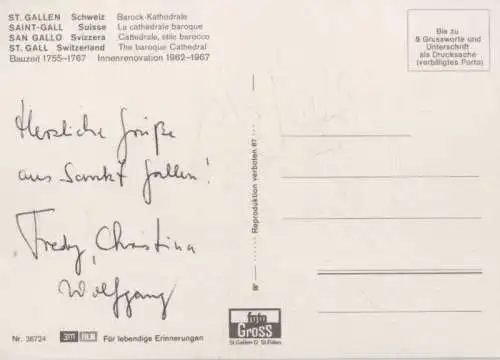 ST. GALLEN Schweiz Barock-Kathedrale
SAINT-GALL Suisse La cathedrale baroque
SAN GALLO Svizzera Cattedrale, stile barocco
ST. GALL Switzerland The baroque Cathedral
Bauzeit 1755–1767 Innenrenovation 1962–1967
Bis zu
5 Grussworte und
Unterschrift
als Drucksache
(verbilligtes Porto)
Herzliche Grüße
aus Sankt Gallen!
Fredy, Christina
Wolfgang
Reproduktion verboten 67
foto
Gross
St.Gallen
Nr. 36724 Für lebendige Erinnerungen